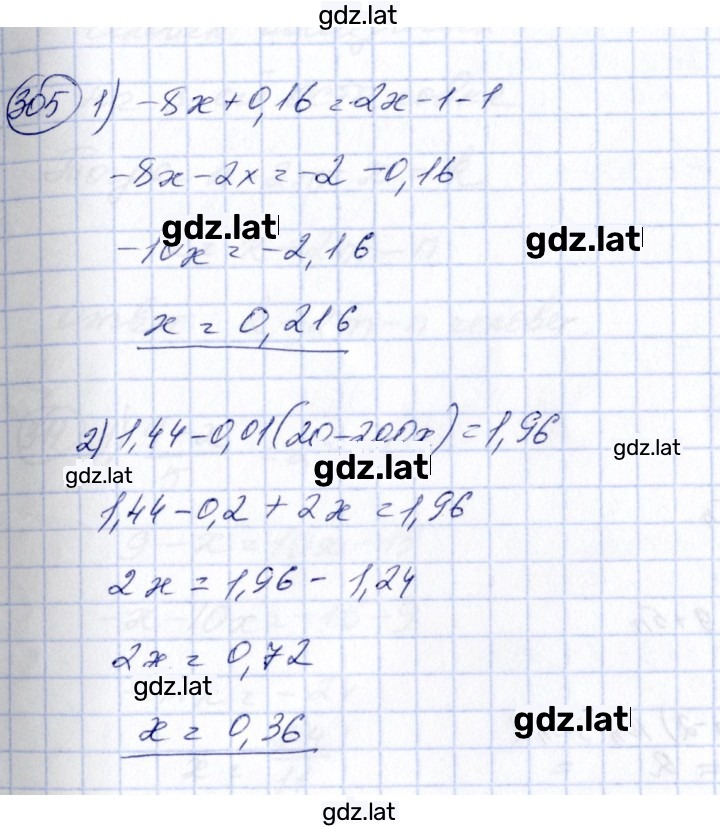 gdz.lat
305 1) -8x+0,16=2x-1-1
-8x-2x=-2-0,16
gdz.lat
gdz.lat
-10x=-2,16
x=0,216
2) 1,44-0,01(20-200x)=1,96
gdz.lat
gdz.lat
gdz.lat
1,44-0,2+2x=1,96
2x=1,96-1,24
2x=0,72
gdz.lat
x=0,36
gdz.lat
gdz.lat